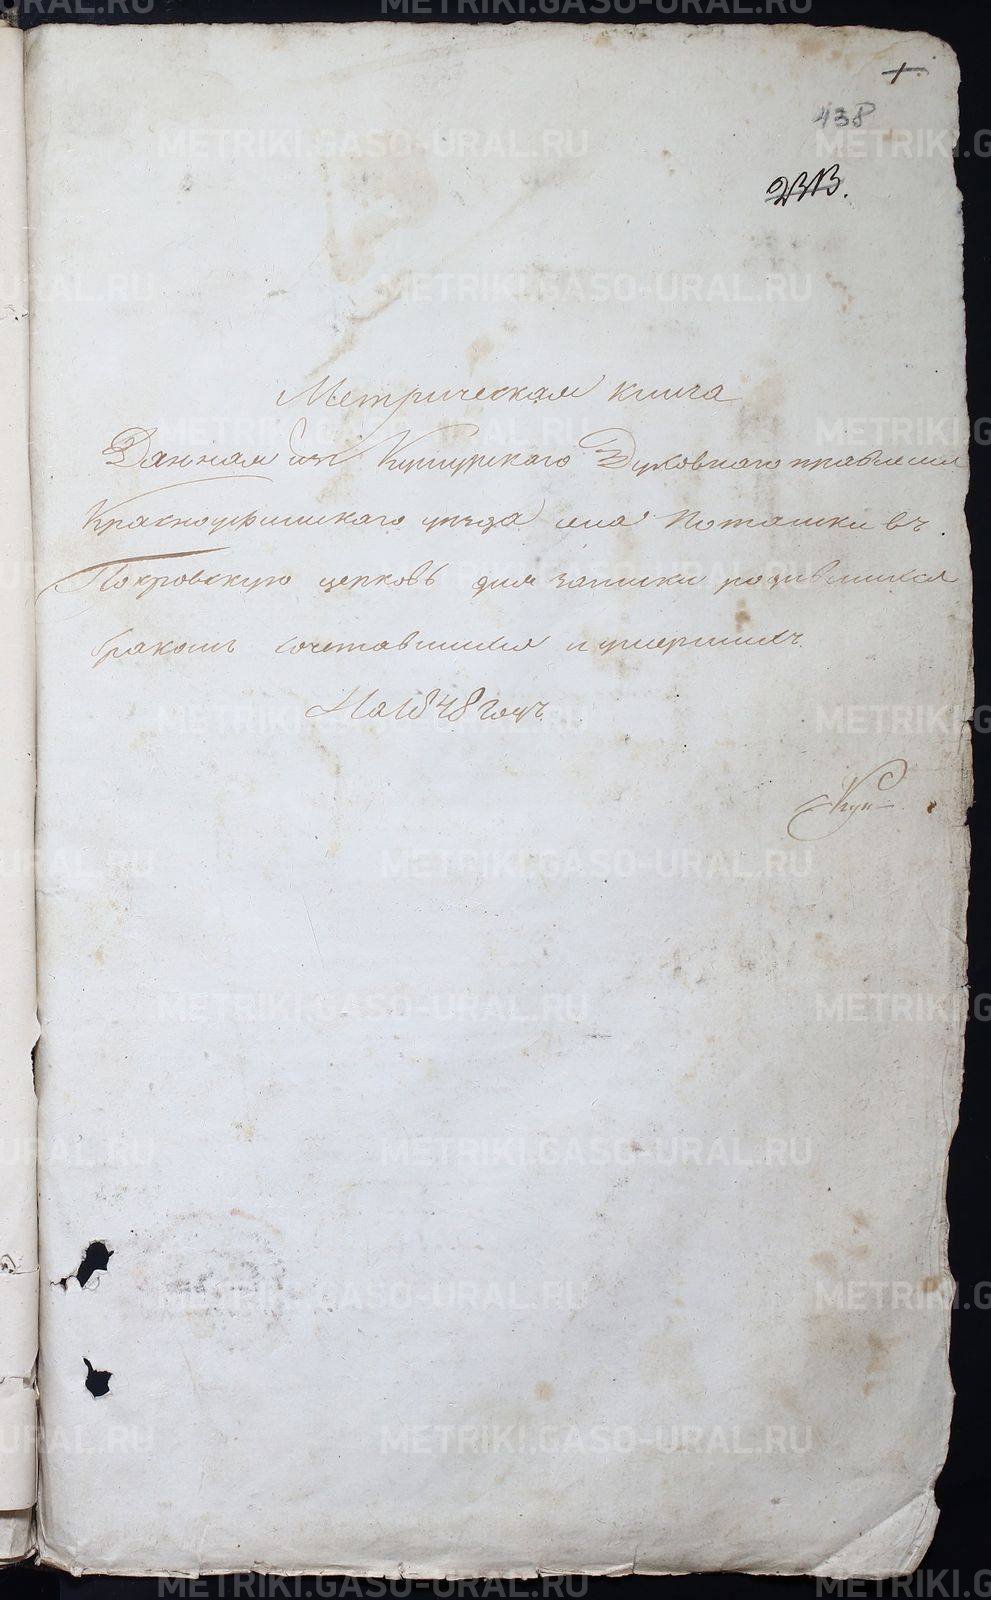 438
Метрическая книга
Данная изъ Кунгурскаго Духовнаго правления
Красноуфимскаго уезда села Поташки въ
Покровскую церковь для записки родившихся
бракомъ сочетавшихся и умершихъ.
На 1848 годъ.
METRIKI.GASO-URAL.RU